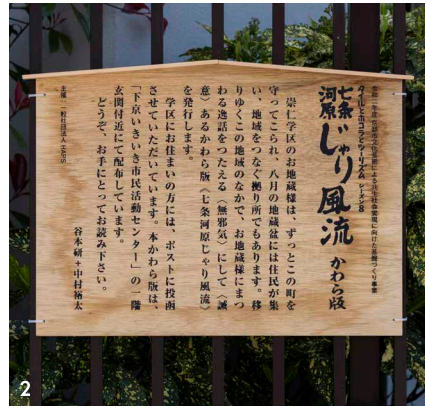 令和二年度 京都市文化芸術による共生社会実現に向けた基盤づくり事業
タイルとホコラとツーリズム シーズン8
七条河原じゃり風流 かわら版
崇仁学区のお地蔵様は、ずっとこの町を
守ってこられ、八月の地蔵盆には住民が集
い、地域をつなぐ拠り所でもあります。移
りゆくこの地域のなかで、お地蔵様にまつ
わる逸話をつたえる〈無邪気〉にして〈誠
意〉あるかわら版《七条河原じゃり風流》
を発行します。
学区にお住まいの方には、ポストに投函
させていただいています。本かわら版は、
「下京いきいき市民活動センター」の一階
玄関付近にて配布しています。
どうぞ、お手にとってお読み下さい。
谷本研＋中村裕太
主催 一般社団法人HAPS
2